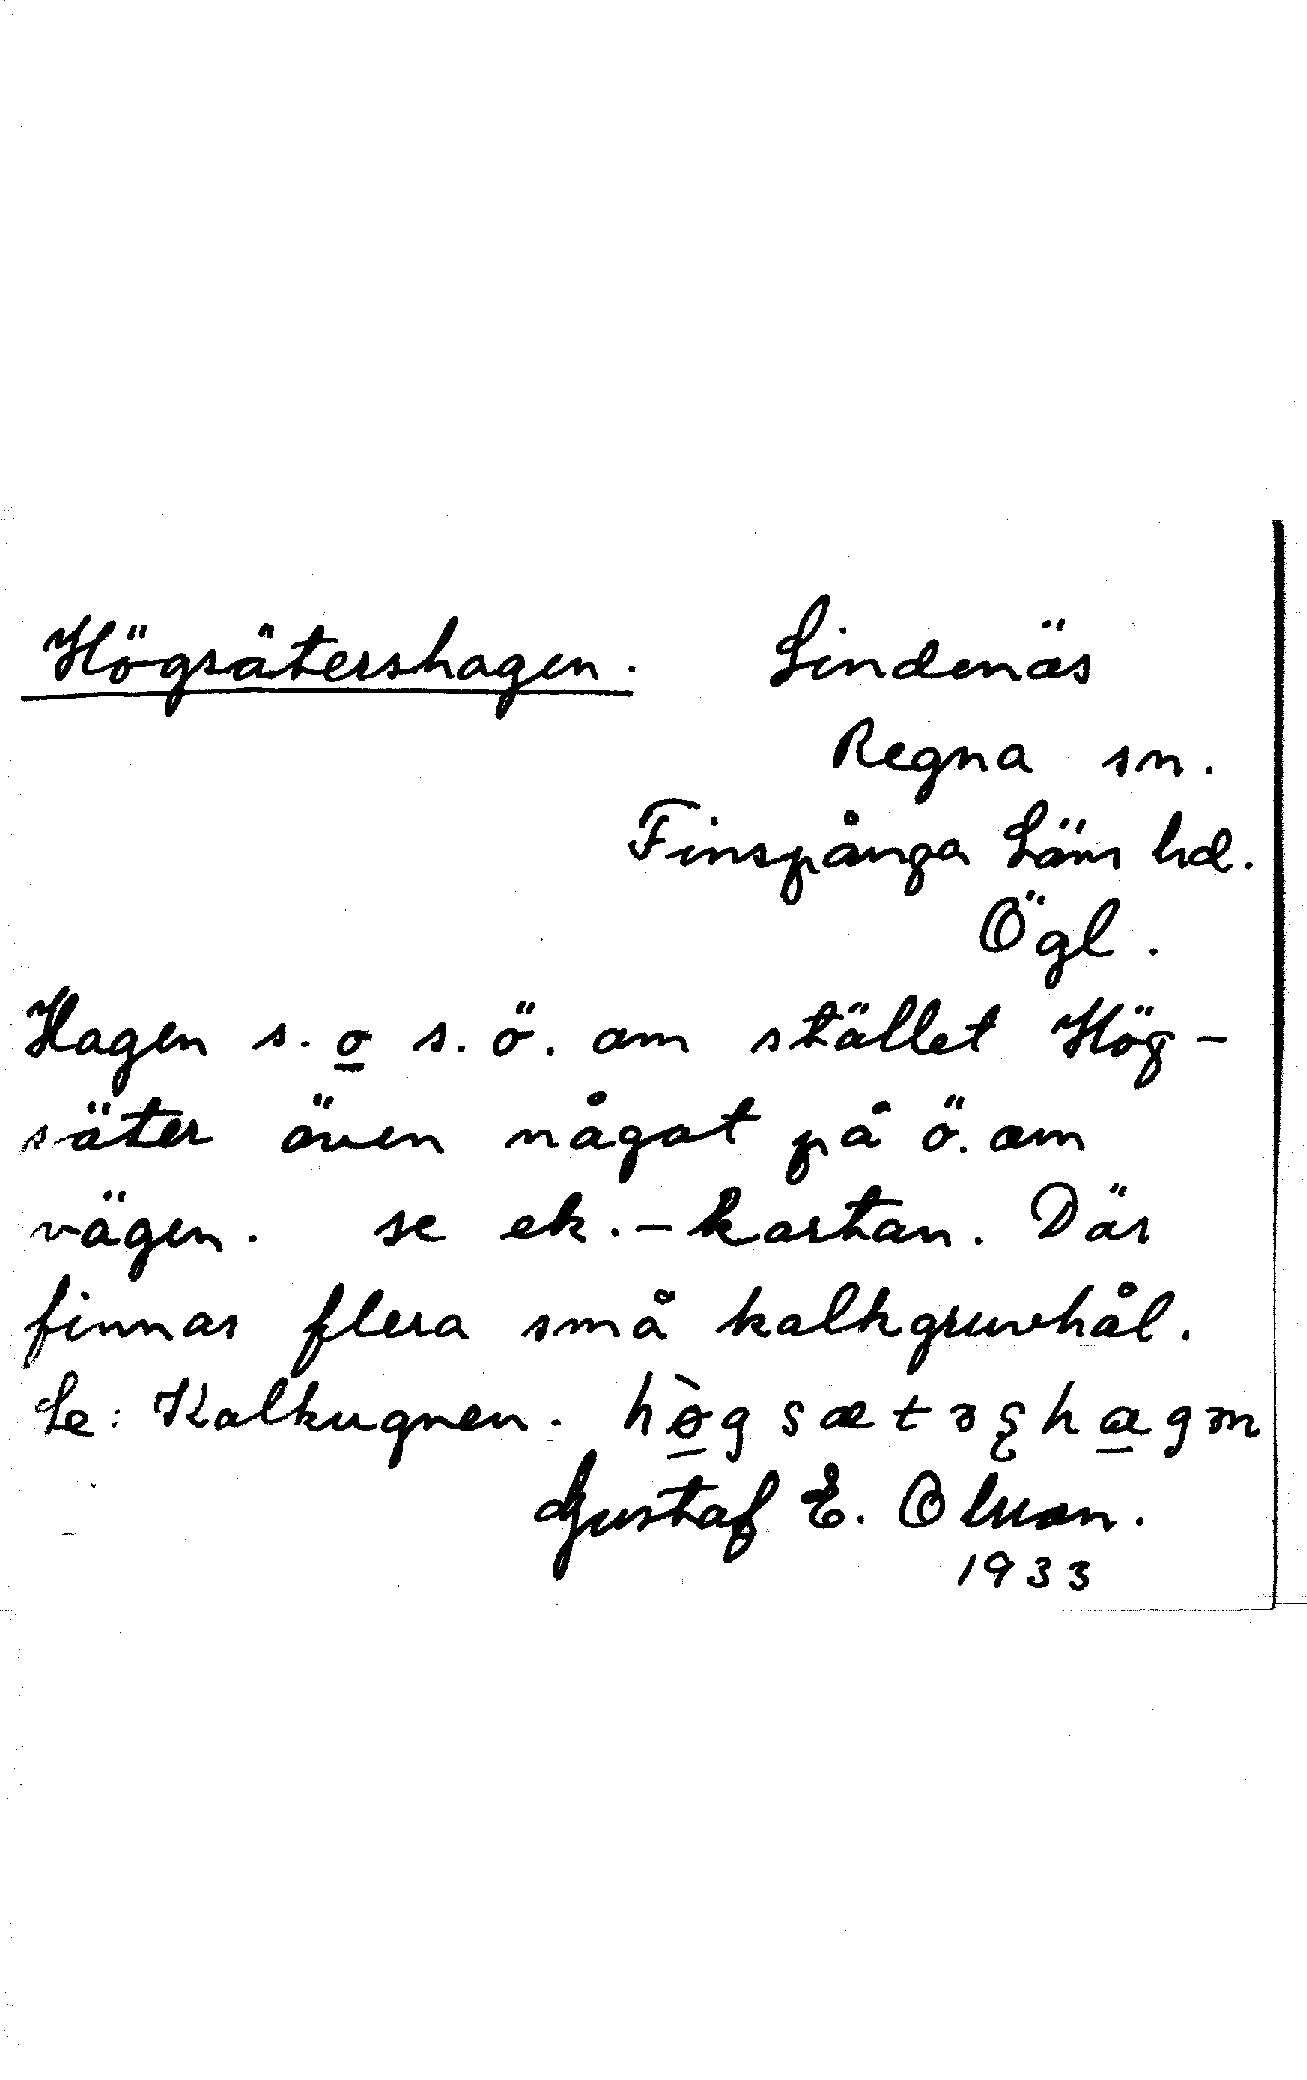 Högsätershagen. Lindenäs
Regna sn.
Finspånga Läns hd.
Ögl.
Hagen s. o s. ö. om stället Hög-
säter även något på ö. om
vägen. se ek.-kartan. Där
finnas flera små kalkgruvhål.
Se: Kalkugnen. hø̀gsætəʂhagən
Gustaf E. Olsson.
1933